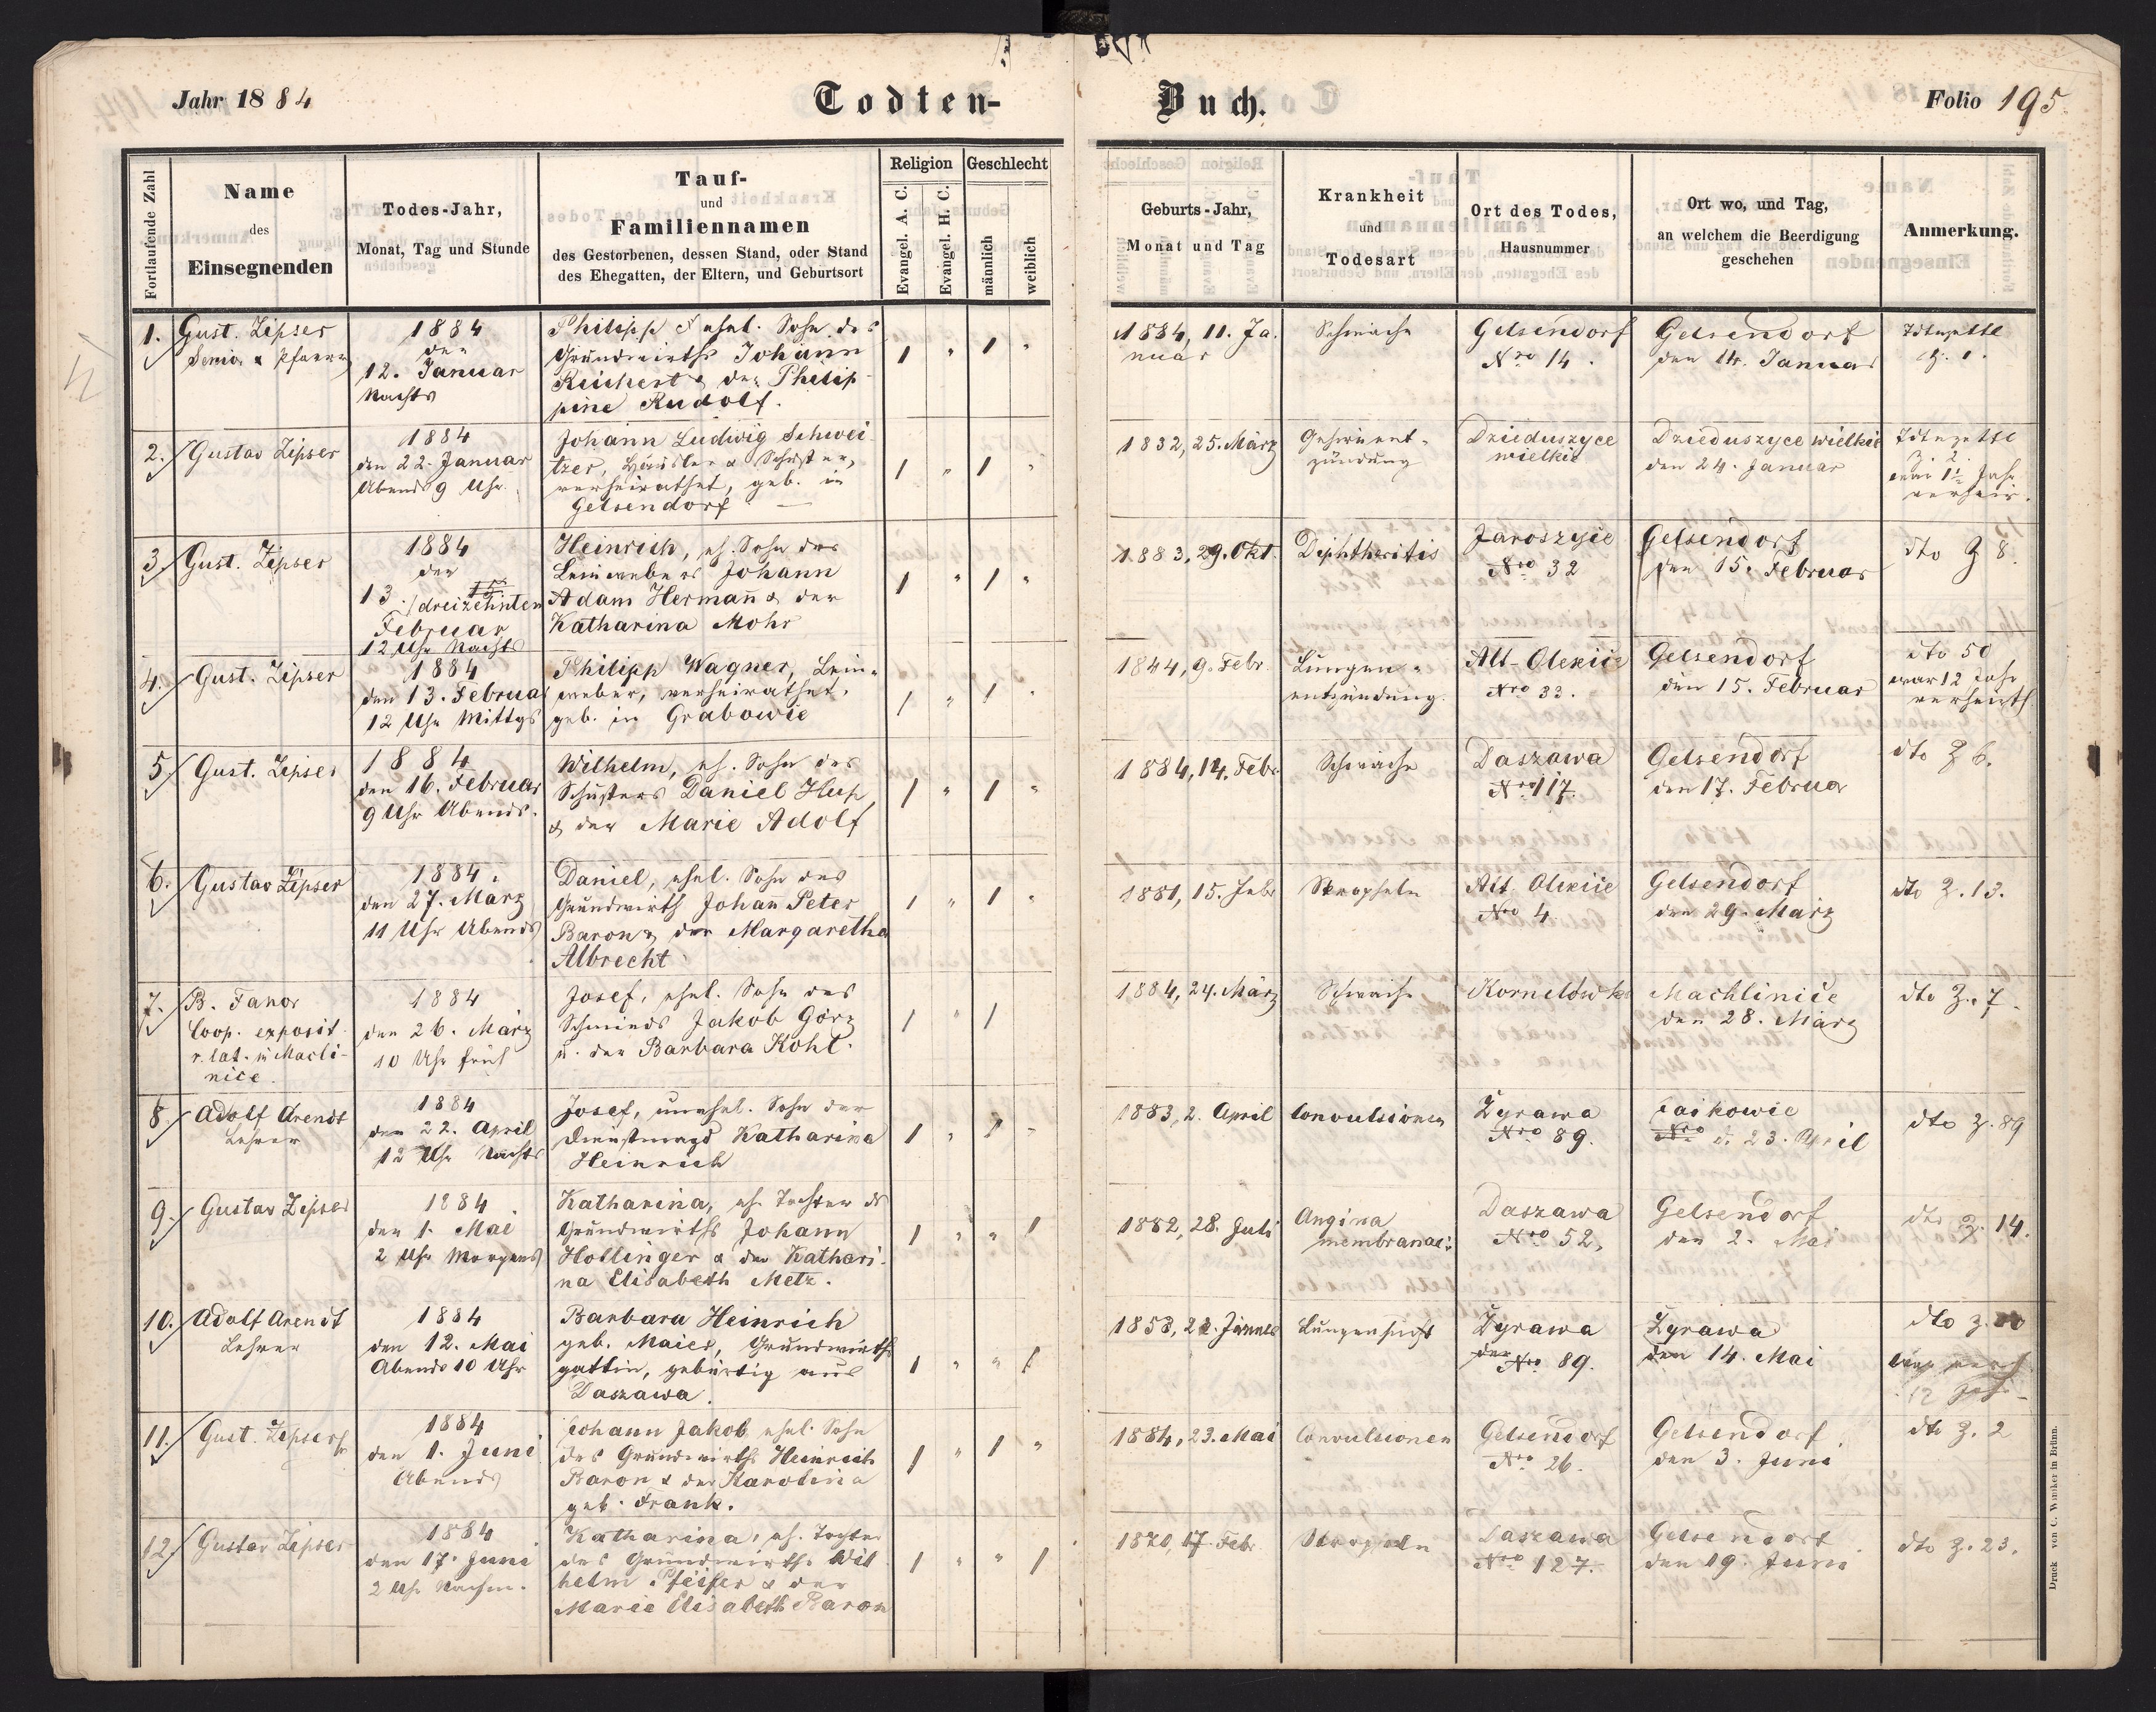 Jahr 1884
Todten-
Buch.
Folio 195
Fortlaufende Zahl
Name
des
Einsegnenden
Todes-Jahr,
Monat, Tag und Stunde
Tauf-
und
Familiennamen
des Gestorbenen, dessen Stand, oder Stand
des Ehegatten, der Eltern, und Geburtsort
Religion
Evangel. A. C.
Evangel. H. C.
Geschlecht
männlich
weiblich
Geburts-Jahr,
Monat und Tag
Krankheit
und
Todesart
Ort des Todes,
Hausnummer
Ort wo, und Tag,
an welchem die Beerdigung
geschehen
Anmerkung.
1.
Gust. Zipser
Senior & Pfarrer
1884
den
12. Januar
Nachts
Philipp ehel. Sohn des
Grundwirths Johann
Reichert & der Philip
pine Rudolf.
1 " 1 "
1884, 11. Ja.
nuar
Schwäche
Gelsendorf
Nro 14.
Gelsendorf
den 14. Januar
Z. 1.
2.
Gustav Zipser
1884
den 22. Januar
Abends 9 Uhr.
Johann Ludwig Schwei
tzer, Häusler & Schuster,
verheirathet, geb. in
Gelsendorf
1 " 1 "
1832, 25. März
Gehirnent-
zündung
Dzieduszyce
wielkie
Dzieduszyce wielkie
den 24. Januar
Z. 2.
3.
Gust. Zipser
1884
den
13. / dreizehnten
Februar
12 Uhr Nachts
Heinrich, eh. Sohn des
Leinwebers Johann
Adam Hermañ & der
Katharina Mohr
1 " 1 "
1883, 29. Okt.
Diphtheritis
Jaroszyce
Nro 32
Gelsendorf
den 15. Februar
dto Z 8.
4.
Gust. Zipser
1884
den 13. Februar
12 Uhr Mittgs
Philipp Wagner, Lein-
weber, verheirathet,
geb. in Grabowie
1 " 1 "
1844, 9. Febr.
Lungen-
entzündung.
Alt-Olexiie
Nro 33.
Gelsendorf
den 15. Februar
dto 50
war 12 Jahr
5.
Gust. Zipser
1884
den 16. Februar
9 Uhr Abends.
Wilhelm, eh. Sohn des
Schusters Daniel Hup
& der Marie Adolf
1 " 1 "
1884, 14. Febr
Schwäche
Daszawa
Nro 117.
Gelsendorf
den 17. Februar
dto Z 6.
6.
Gustav Zipser
1884.
den 27. März
11 Uhr Abends
Daniel, ehel. Sohn des
Grundwirth Johañ Peter
Baron & der Margaretha
Albrecht
1 " 1 "
1881, 15. Febr
Skropheln
Alt Olexiie
Nro 4.
Gelsendorf
den 29. März
dto Z. 13.
7.
B. Fanor
Coop. exposit.
r. lat. in Machli-
nice.
1884
den 26. März
10 Uhr früh
Josef, ehel. Sohn des
Schmieds Jakob Görz
u. der Barbara Kohl.
1 " 1
1884, 24. März
Schwäche
Kornelówka
Machlinice
den 28. März
dto Z. 7.
8.
Adolf Arendt
Lehrer
1884
den 22. April
12 Uhr Nachts
Josef, unehel. Sohn der
Dienstmagd Katharina
Heinrich
1 " 1 "
1883, 2. April
Convulsionen
Zyrawa
Nro 89.
Caikowic
Nro d. 23. April
dto Z. 89
9.
Gustav Zipser
1884
den 1. Mai
2 Uhr Morgens
Katharina, eh. Tochter ds
Grundwirths Johann
Hollinger & der Kathari-
na Elisabeth Metz.
1 " " 1
1882, 28. Juli
Angina
membranac:
Daszawa
Nro 52.
Gelsendorf
den 2. Mai
dto Z. 14.
10.
Adolf Arendt
Lehrer
1884
den 12. Mai
Abends 10 Uhr
Barbara Heinrich
geb. Maier, Grundwirths
gattin, gebürtig aus
Daszawa.
1 " " 1
Lungensucht
Zyrawa
Nro 89.
Zyrawa
den 14. Mai
dto Z.
11.
Gust. Zipser
1884
den 1. Juni
Abends
Johann Jakob ehel. Sohn
des Grundwirths Heinrich
Baron & der Karolina
geb. Frank.
1 " 1 "
1884, 23. Mai
Convulsionen
Gelsendorf
Nro 26.
Gelsendorf
den 3. Juni
dto Z. 2
12.
Gustav Zipser
1884
den 17. Juni
2 Uhr Nachm.
Katharina, eh. Tochter
des Grundwirths Wil
helm Pfeifer & der
Marie Elisabeth Baron
1 " " 1
1870, 17. Febr.
Skropheln
Daszawa
Nro 127.
Gelsendorf
den 19. Juni
dto Z. 23.
Druck von C. Winiker in Brünn.